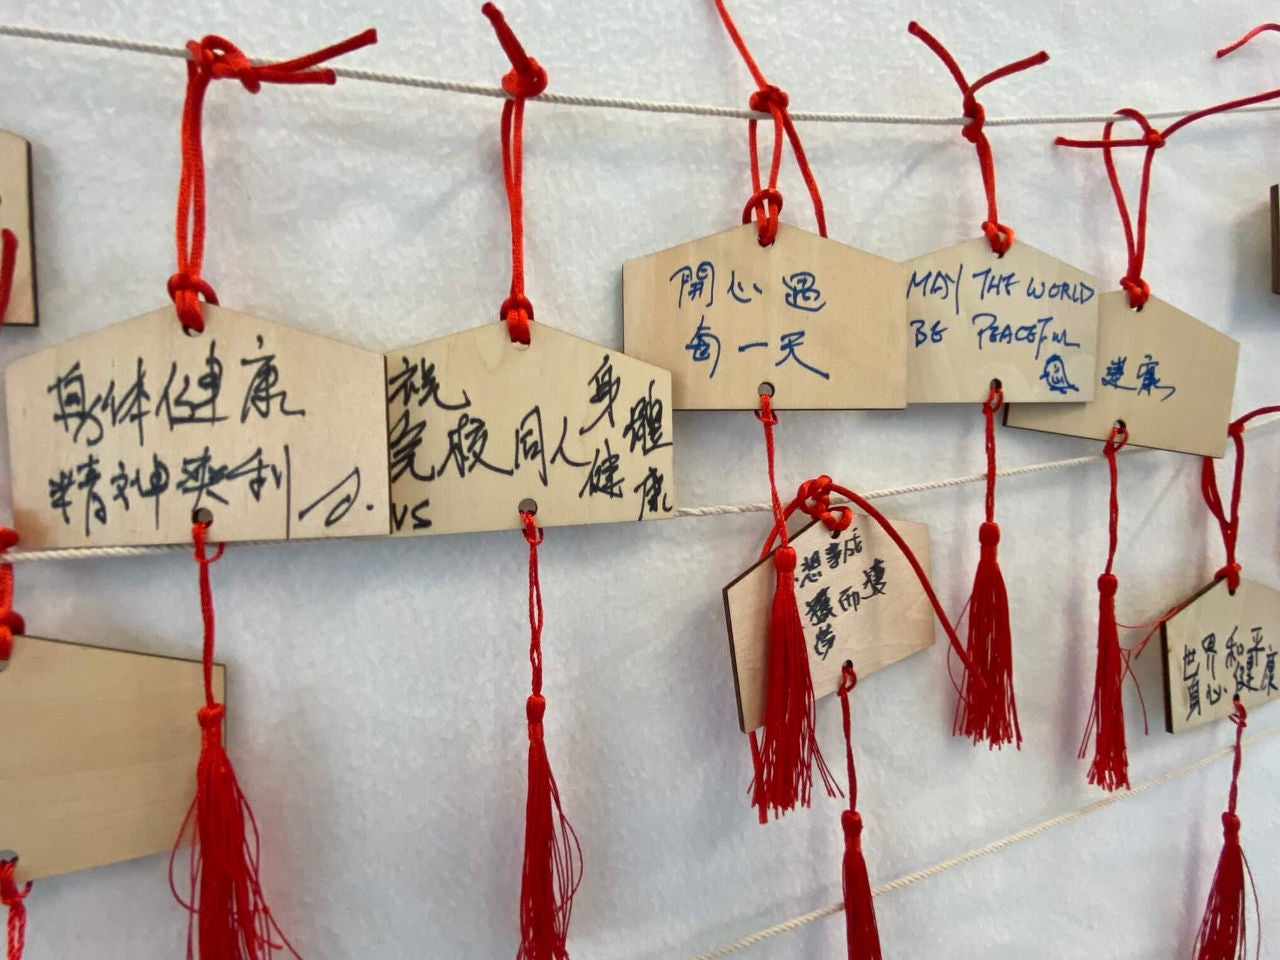 身体健康
精神爽利
祝
完校同人
身體
健康
VS
開心過
每一天
MAY THE WORLD
BE PEACEFUL
健康
想事成
而
夢
世界和平
身心健康